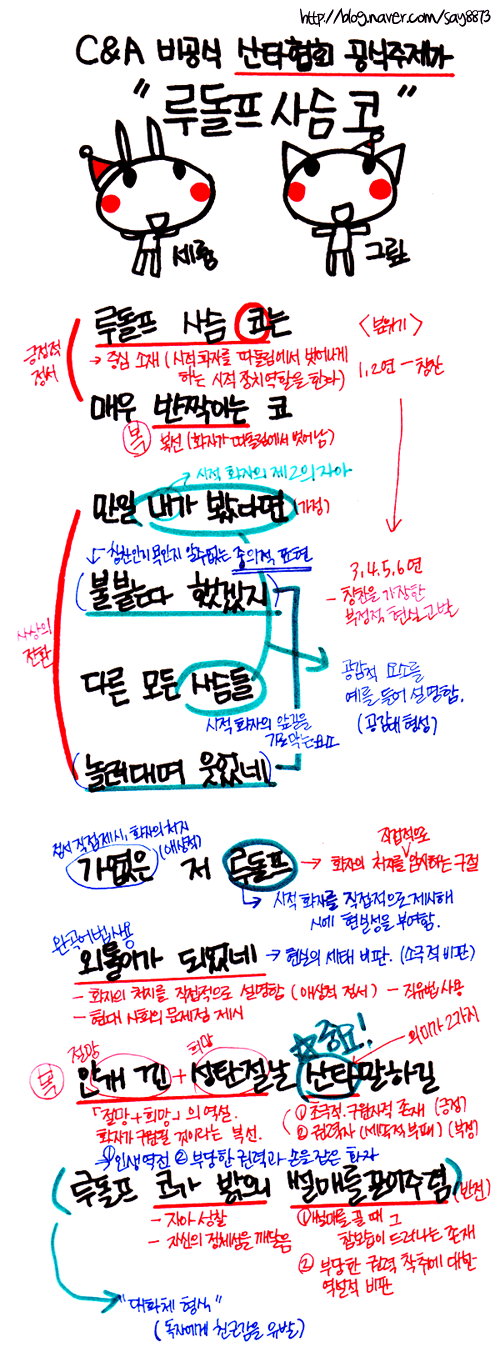 http://blog.naver.com/say8873
C&A 비공식 산타협회 공식주제가
"루돌프 사슴 코"
세륨
그맆
루돌프 사슴 코는
긍정적 정서
→ 중심 소재 (시적화자를 따돌림에서 벗어나게
하는 시적 장치 역할을 한다)
<분위기>
1,2연 - 칭찬
매우 반짝이는 코
복 복선 (화자가 따돌림에서 벗어남)
→ 시적 화자의 제2의 자아
만일 내가 봤다면 (가정)
↓ 칭찬인지 욕인지 알수없는 중의적 표현
(불붙는다 했겠지)
3,4,5,6연
- 칭찬을 가장한
부정적 현실 고발
사상의 전환
다른 모든 사슴들
시적 화자의 앞길을
가로막는 요소
공감적 요소를
예를 들어 설명함.
(공감대 형성)
(놀려대며 웃었네)
정서 직접제시, 화자의 처지
(애상적)
가엾은 저 루돌프
직접적으로
→ 화자의 처지를 암시하는 구절
→ 시적 화자를 직접적으로 제시해
시에 현실성을 부여함.
완곡어법 사용
외톨이가 되었네 → 현실의 세태 비판. (소극적 비판)
- 화자의 처지를 직접적으로 설명함 (애상적 정서) - 직유법 사용
- 현대 사회의 문제점 제시
☆중요!
의미가 2가지
절망
희망
복 안개 낀 + 성탄절날 산타 말하길
「절망+희망」의 역설.
화자가 구원될 것이라는 복선.
① 초극적·구원자적 존재 (긍정)
② 권력자 (세속적 부패) (부정)
→ ① 인생역전 ② 부당한 권력과 손을 잡은 화자
(루돌프 코가 밝으니 썰매를 끌어주렴) (반전)
- 자아 성찰
- 자신의 정체성을 깨달음
① 썰매를 끌 때 그
참모습이 드러나는 존재
② 부당한 권력 착취에 대한
역설적 비판
→ "대화체 형식"
(독자에게 친근감을 유발)